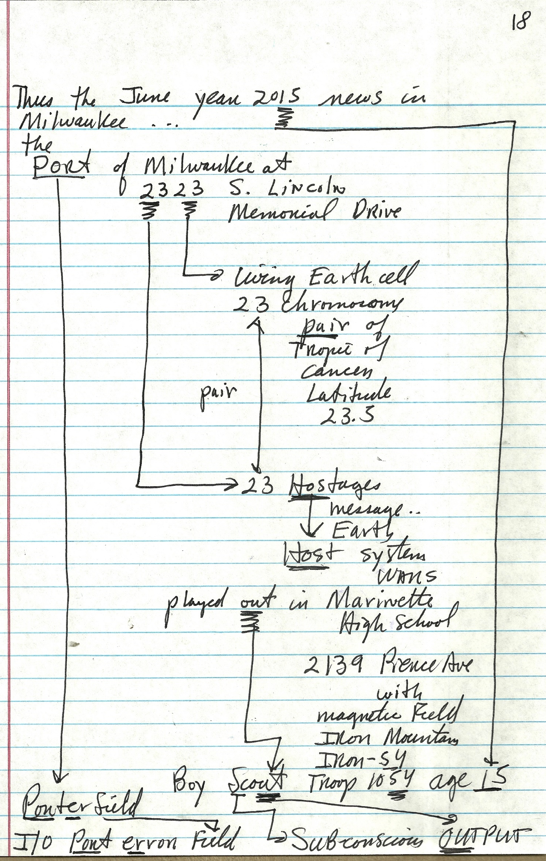 18
Thus the June year 2015 news in
Milwaukee ...
the
Port of Milwaukee at
2323 S. Lincoln
Memorial Drive
Living Earth cell
23 Chromosome
pair of
Tropic of
Cancer
Latitude
23.5
pair
23 Hostages
message..
Earth
Host system
WARS
played out in Marinette
High School
2139 Pierce Ave
with
magnetic Field
Iron Mountain
Iron-54
Boy Scout Troop 1054 age 15
Porterfield
I/O Port error Field Subconscious OUTPUT